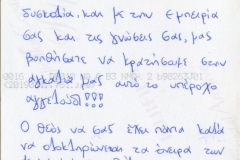 δυσκολία, και με την εμπειρία
σας και τις γνώσεις σας, μας
βοηθήσατε να κρατήσουμε στην
αγκαλιά μας αυτό το υπέροχο
αγγελούδι!!!
Ο Θεός να σας έχει πάντα καλά
να ολοκληρώνεται τα όνειρα των